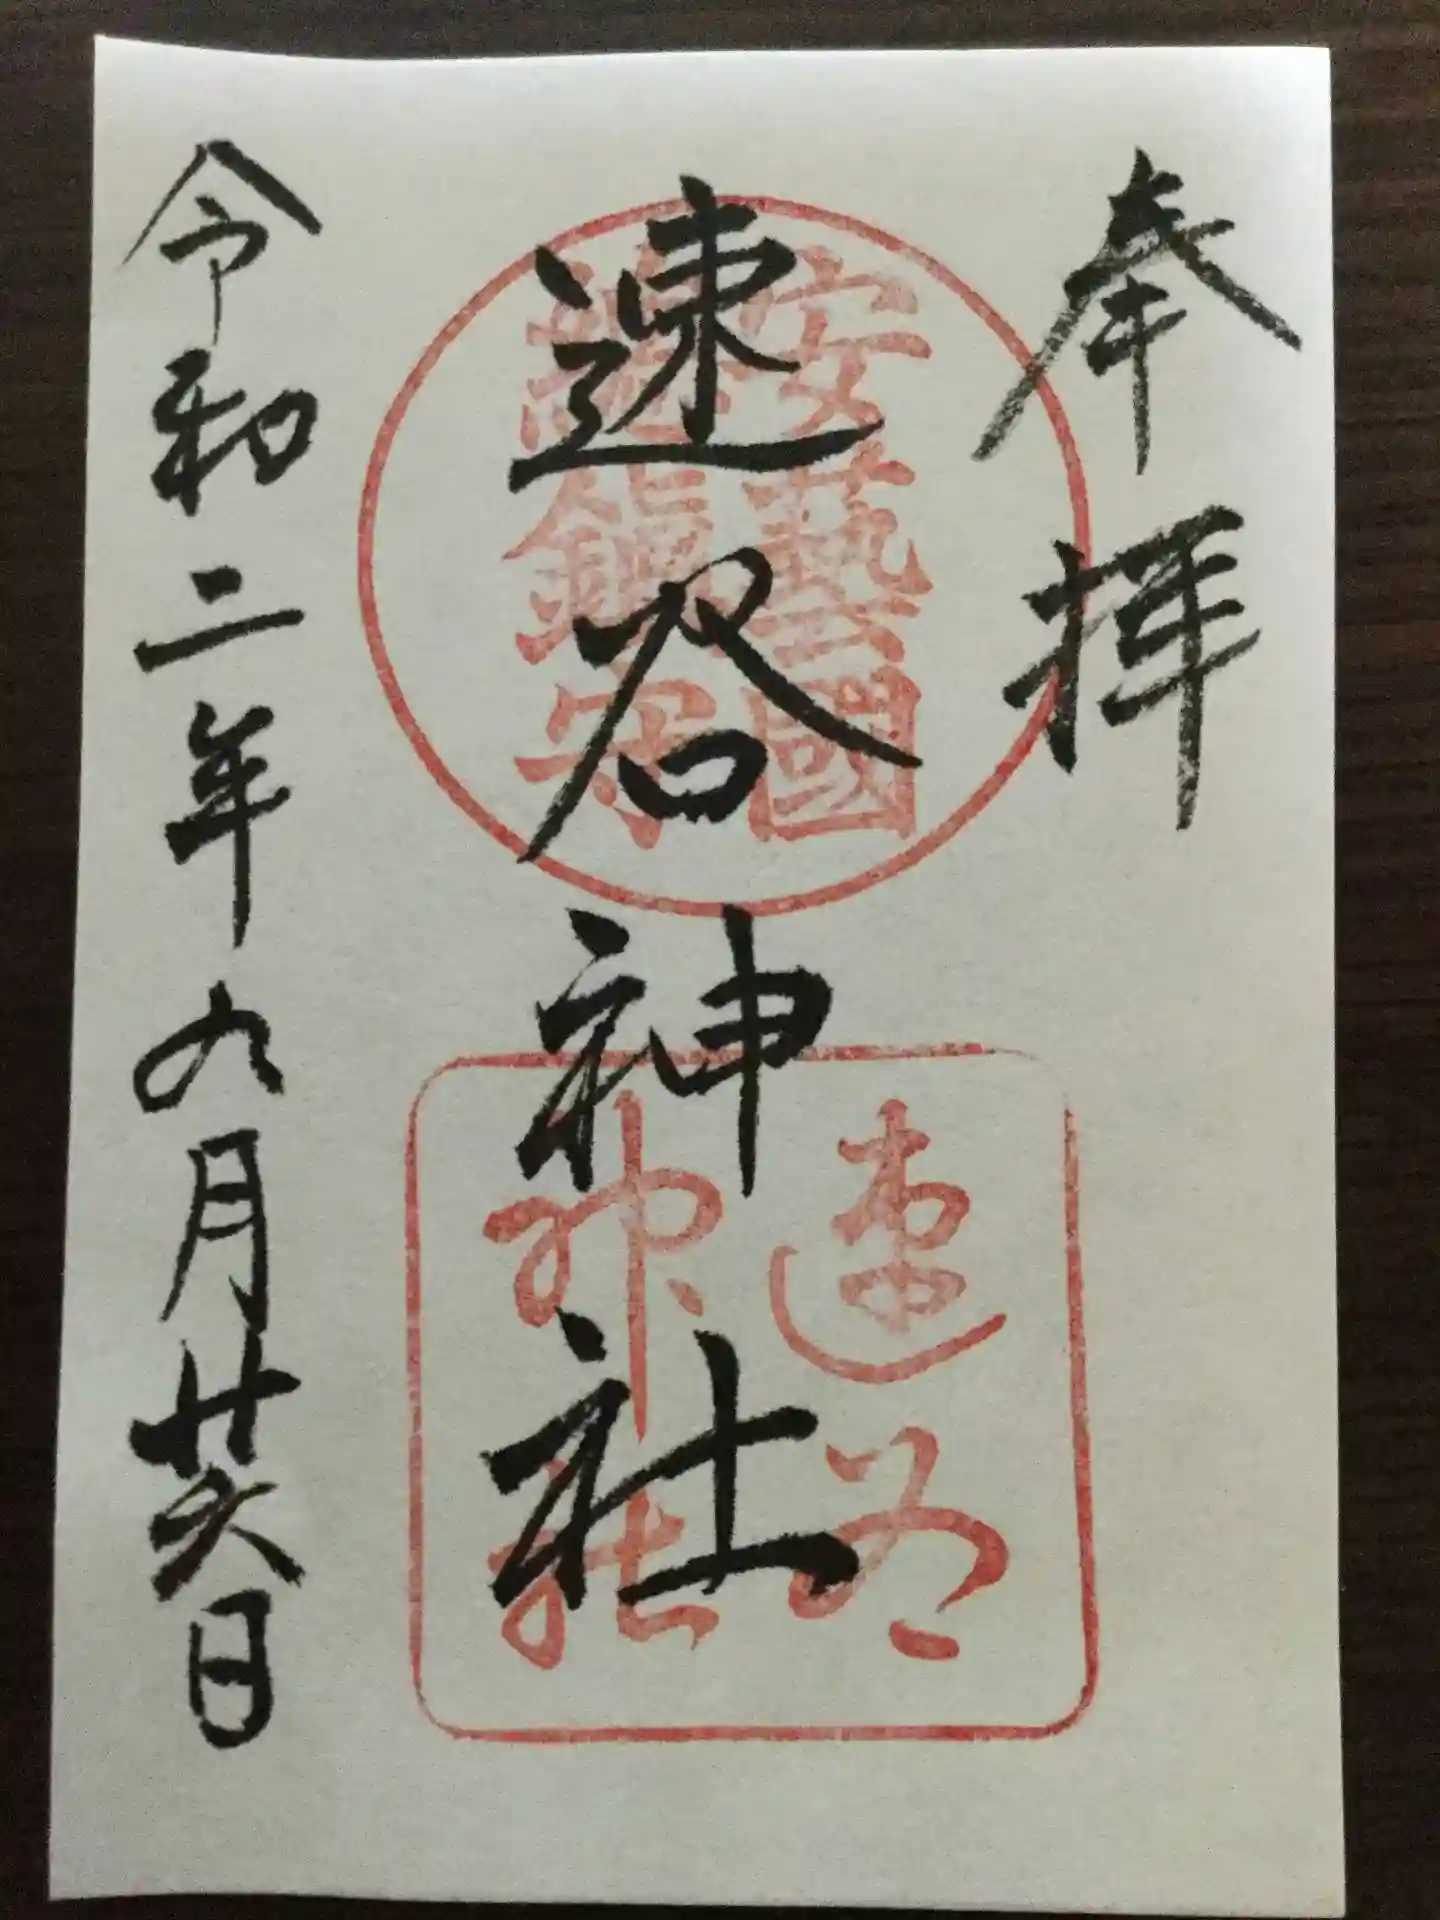 奉拝
速谷神社
安藝國
總鎮守
速谷
神社
令和二年九月廿六日